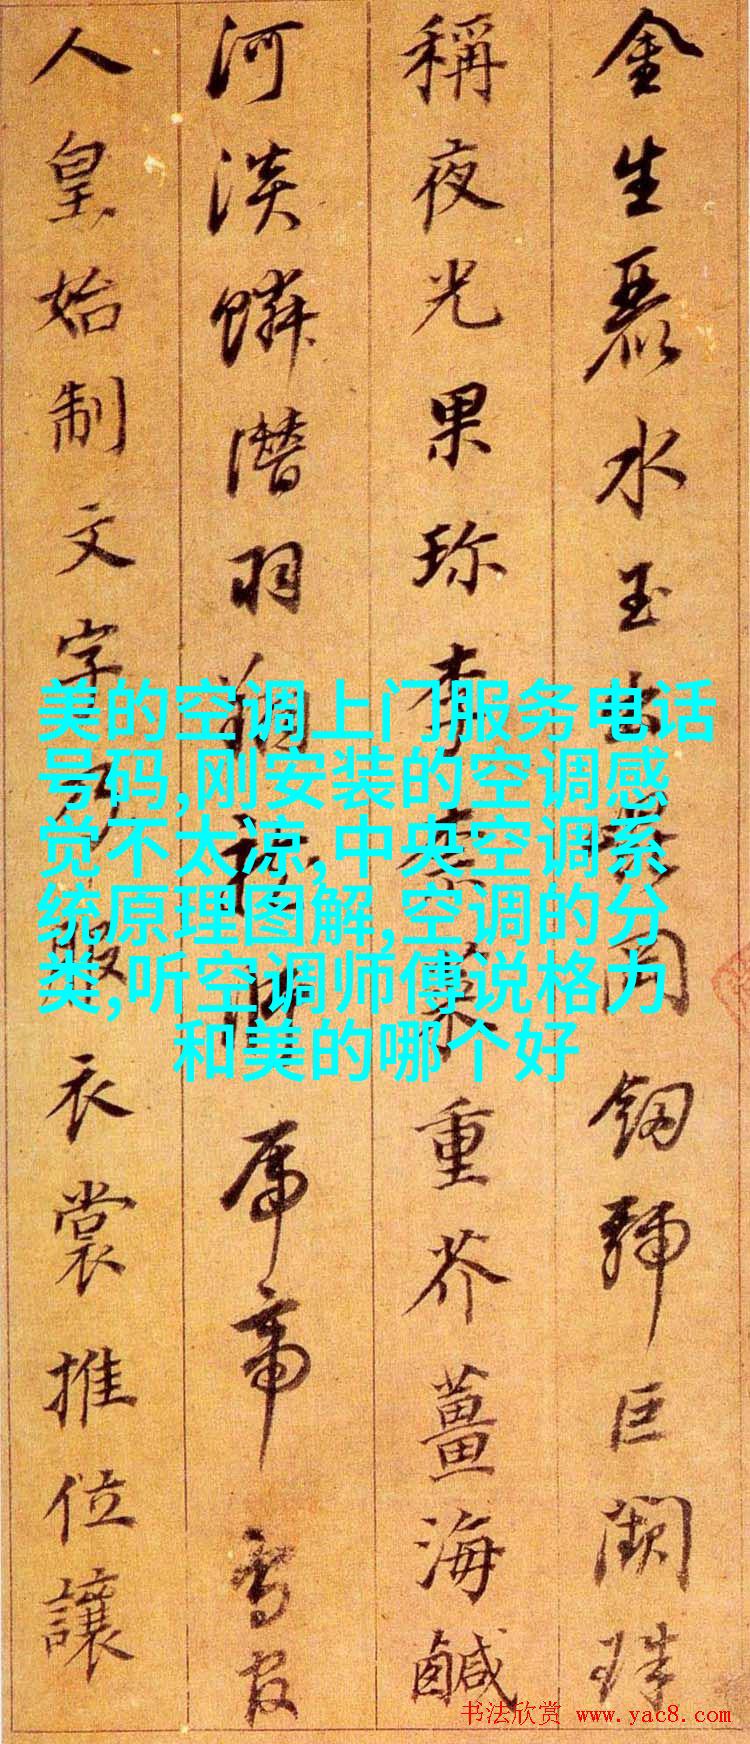 金生麗水玉出崑岡劒號巨闕珠
稱夜光果珍李柰菜重芥薑海鹹
河淡鱗潛羽翔帝鳥官
人皇始制文字乃服衣裳推位讓
美的空调上门服务电话
号码,刚安装的空调感
觉不太凉,中央空调系
统原理图解,空调的分
类,听空调师傅说格力
和美的哪个好
书法欣赏 www.yac8.com